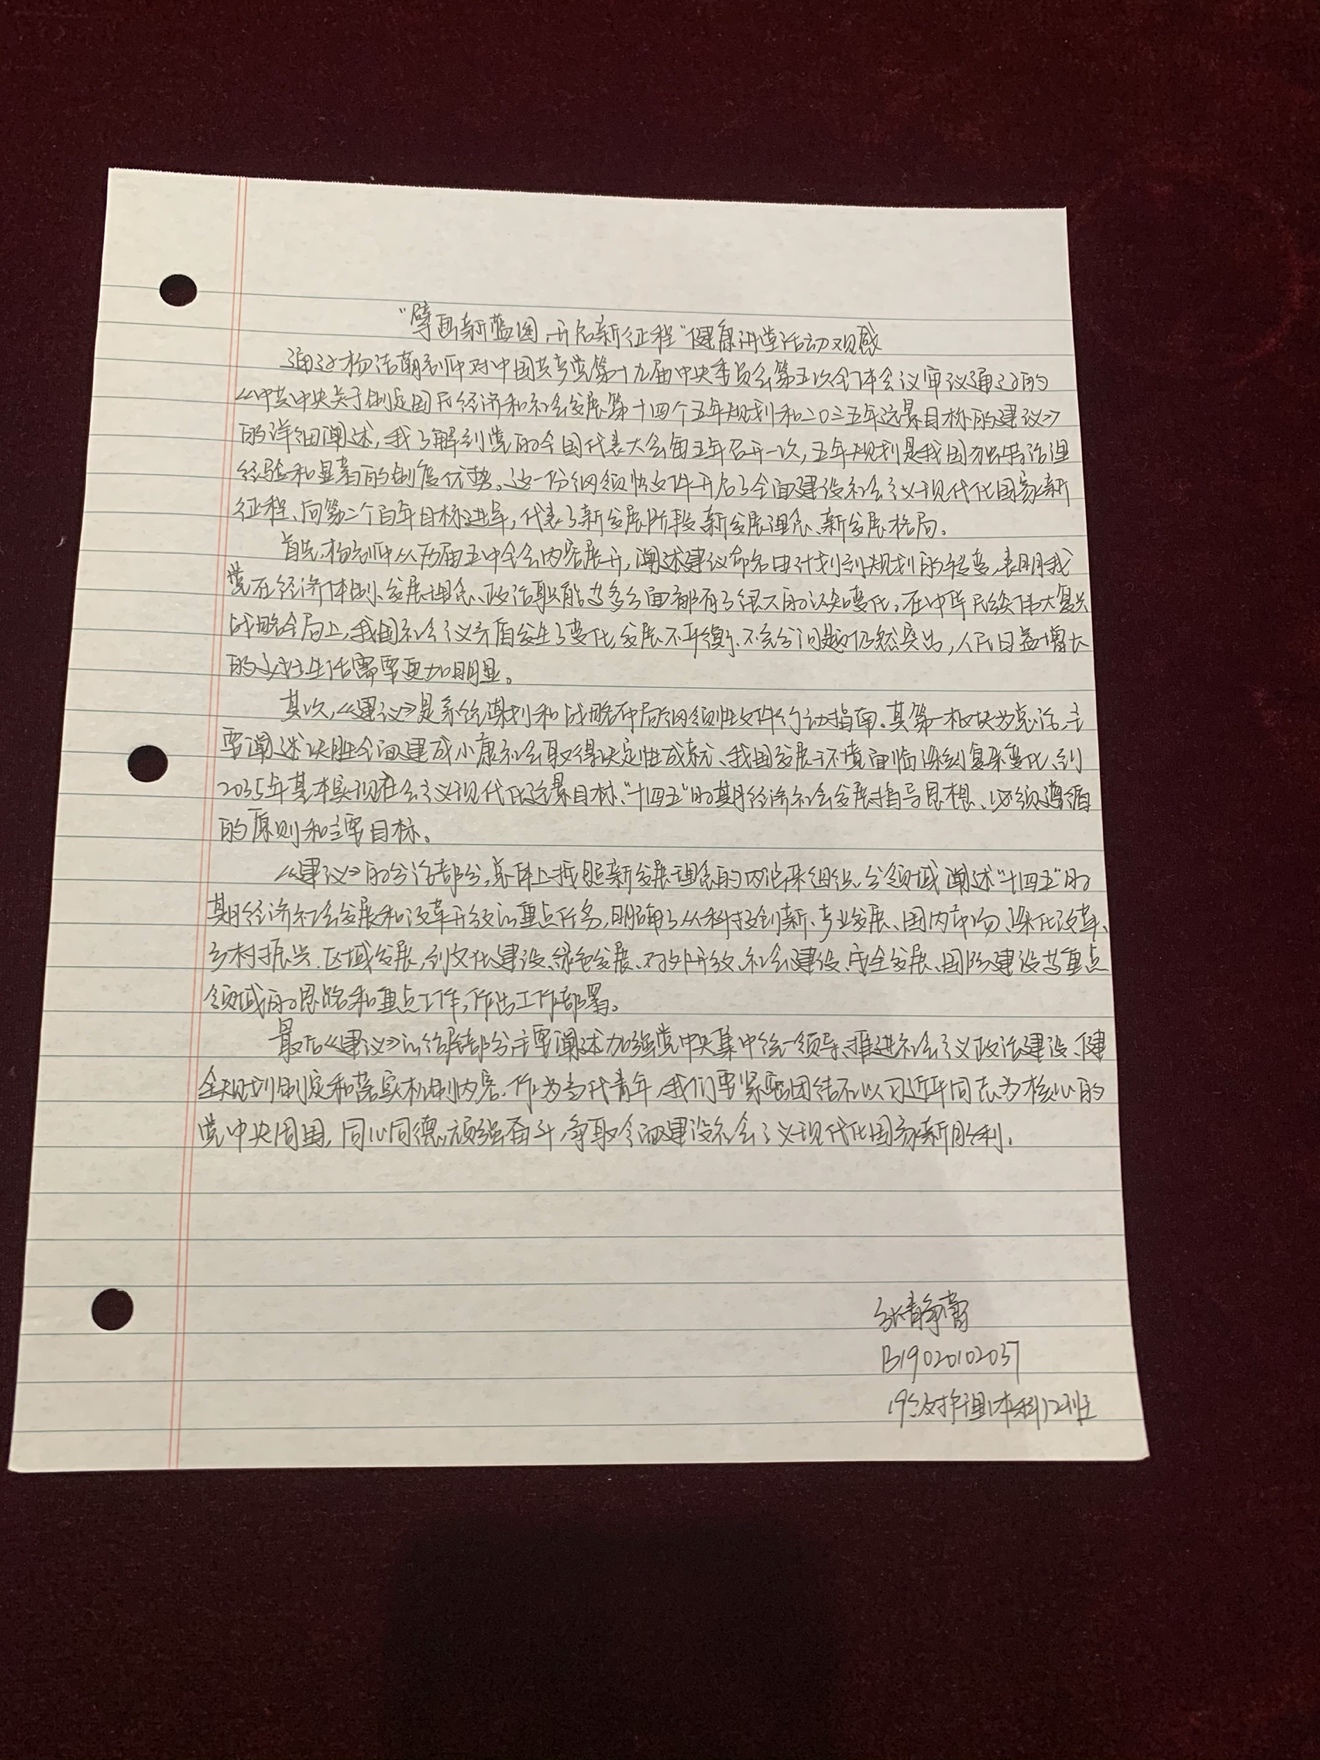 “擘画新蓝图,开启新征程”健康讲堂活动观感
通过杨洁朝老师对中国共产党第十九届中央委员会第五次全体会议审议通过的
《中共中央关于制定国民经济和社会发展第十四个五年规划和二〇三五年远景目标的建议》
的详细阐述,我了解到党的全国代表大会每五年召开一次,五年规划是我国独特治理
经验和显著的制度优势。这一份纲领性文件开启了全面建设社会主义现代化国家新
征程、向第二个百年目标进军,代表了新发展阶段、新发展理念、新发展格局。
首先,杨老师从历届五中全会内容展开,阐述建议命名由计划到规划的转变,表明我
党在经济体制、发展理念、政治职能等多方面都有了很大的认知变化,在中华民族伟大复兴
战略全局上,我国社会主义矛盾发生了变化,发展不平衡、不充分问题仍然突出,人民日益增长
的美好生活需要更加明显。
其次,《建议》是系统谋划和战略布局的纲领性文件行动指南。其第一板块为总论,主
要阐述决胜全面建成小康社会取得决定性成就、我国发展环境面临深刻复杂变化、到
2035年基本实现社会主义现代化远景目标、“十四五”时期经济社会发展指导思想、必须遵循
的原则和主要目标。
《建议》的分论部分,总体上按照新发展理念的内涵来组织,分领域阐述“十四五”时
期经济社会发展和改革开放的重点任务,明确了从科技创新、产业发展、国内市场、深化改革、
乡村振兴、区域发展,到文化建设、绿色发展、对外开放、社会建设、安全发展、国防建设等重点
领域的思路和重点工作,作出工作部署。
最后《建议》的结尾部分主要阐述加强党中央集中统一领导、推进社会主义政治建设、健
全规划制定和落实机制内容。作为当代青年,我们要紧密团结在以习近平同志为核心的
党中央周围,同心同德,顽强奋斗,争取全面建设社会主义现代化国家新胜利。
张静蕾
B19020102037
19级护理本科12班